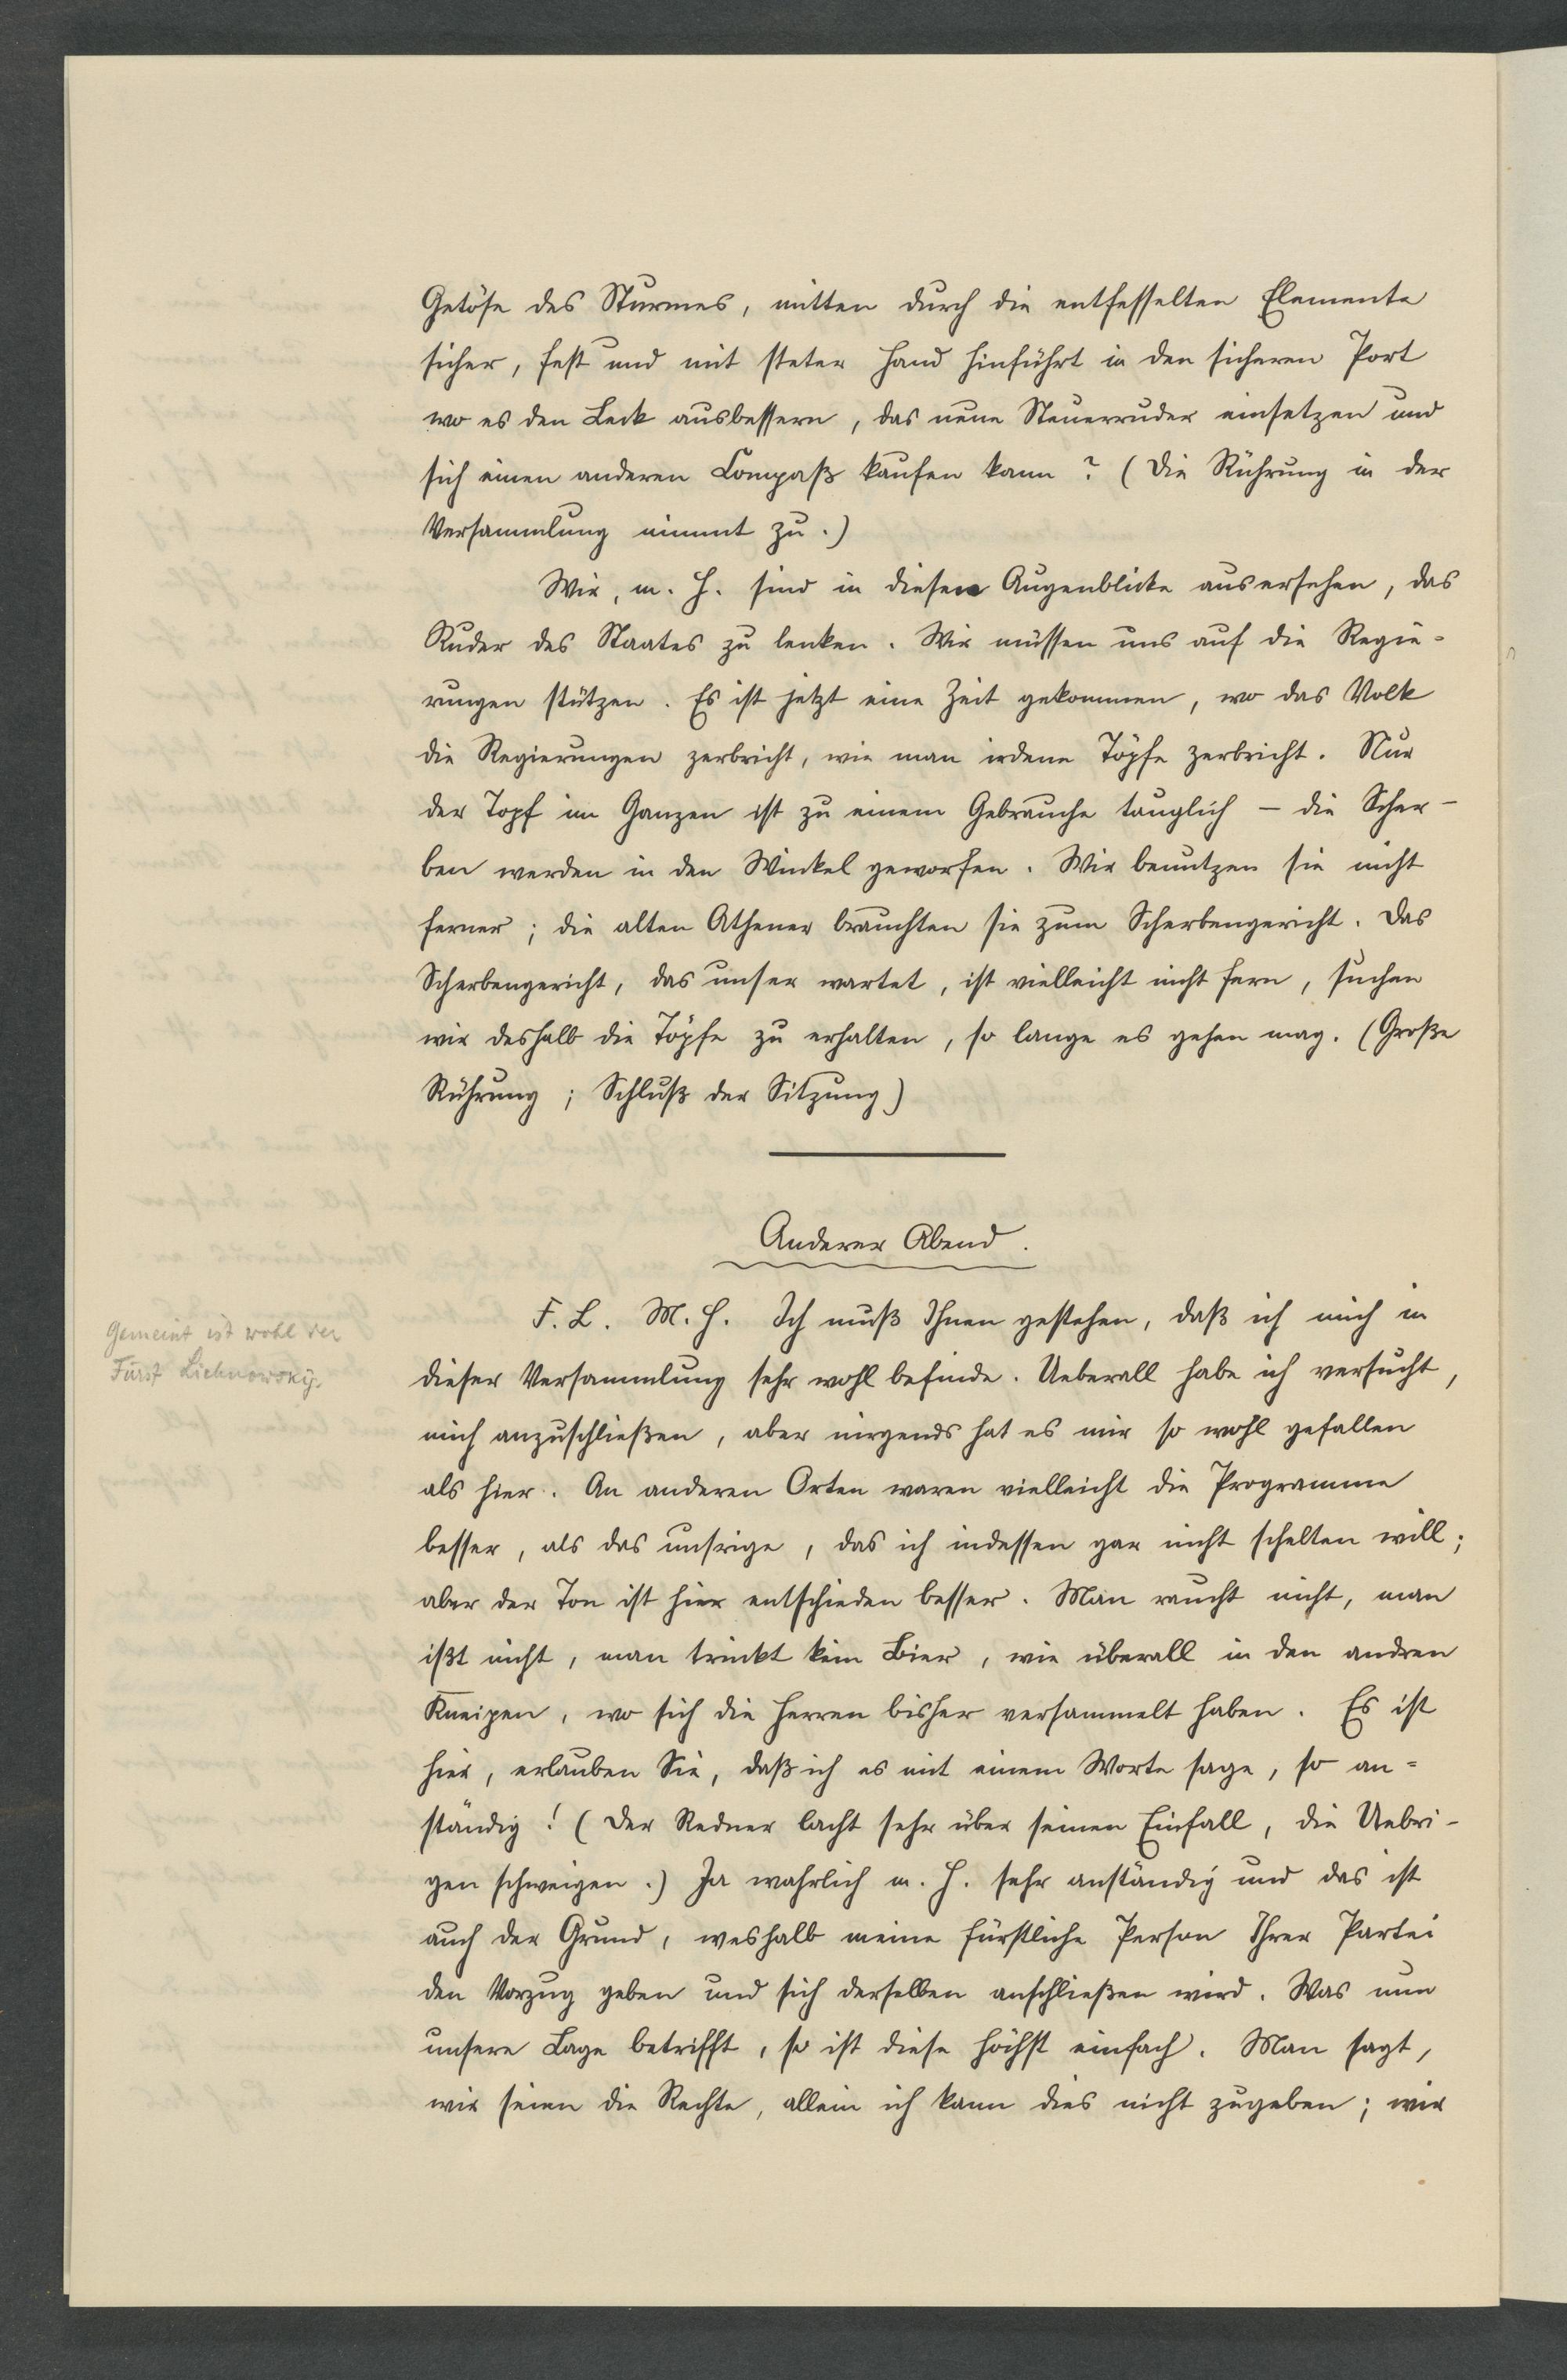 Getöse des Sturmes, mitten durch die entfesselten Elemente
sicher, fest und mit steter Hand hinführt in den sicheren Port
wo es den Leck ausbessern, das neue Steuerruder einsetzen und
sich einen anderen Compaß kaufen kann? (Die Rührung in der
Versammlung nimmt zu.)
Wir, m. H. sind in diesem Augenblicke ausersehen, das
Ruder des Staates zu lenken. Wir müssen uns auf die Regie-
rungen stützen. Es ist jetzt eine Zeit gekommen, wo das Volk
die Regierungen zerbricht, wie man irdene Töpfe zerbricht. Nur
der Topf im Ganzen ist zu einem Gebrauche tauglich – die Scher-
ben werden in den Winkel geworfen. Wir benutzen sie nicht
ferner; die alten Athener brauchten sie zum Scherbengericht. Das
Scherbengericht, das unser wartet, ist vielleicht nicht fern, suchen
wir deshalb die Töpfe zu erhalten, so lange es gehen mag. (Große
Rührung; Schluß der Sitzung)
Anderer Abend.
F. L. M. H. Ich muß Ihnen gestehen, daß ich mich in
dieser Versammlung sehr wohl befinde. Ueberall habe ich versucht,
mich anzuschließen, aber nirgends hat es mir so wohl gefallen
als hier. An anderen Orten waren vielleicht die Programme
besser, als das unsrige, das ich indessen gar nicht schelten will;
aber der Ton ist hier entschieden besser. Man raucht nicht, man
ißt nicht, man trinkt kein Bier, wie überall in den andren
Kneipen, wo sich die Herren bisher versammelt haben. Es ist
hier, erlauben Sie, daß ich es mit einem Worte sage, so an-
ständig! (Der Redner lacht sehr über seinen Einfall, die Uebri-
gen schweigen.) Ja wahrlich m. H. sehr anständig und das ist
auch der Grund, weshalb meine fürstliche Person Ihrer Partei
den Vorzug geben und sich derselben anschließen wird. Was nun
unsere Lage betrifft, so ist diese höchst einfach. Man sagt,
wir seien die Rechte, allein ich kann dies nicht zugeben; wir
Gemeint ist wohl der
Fürst Lichnowsky.